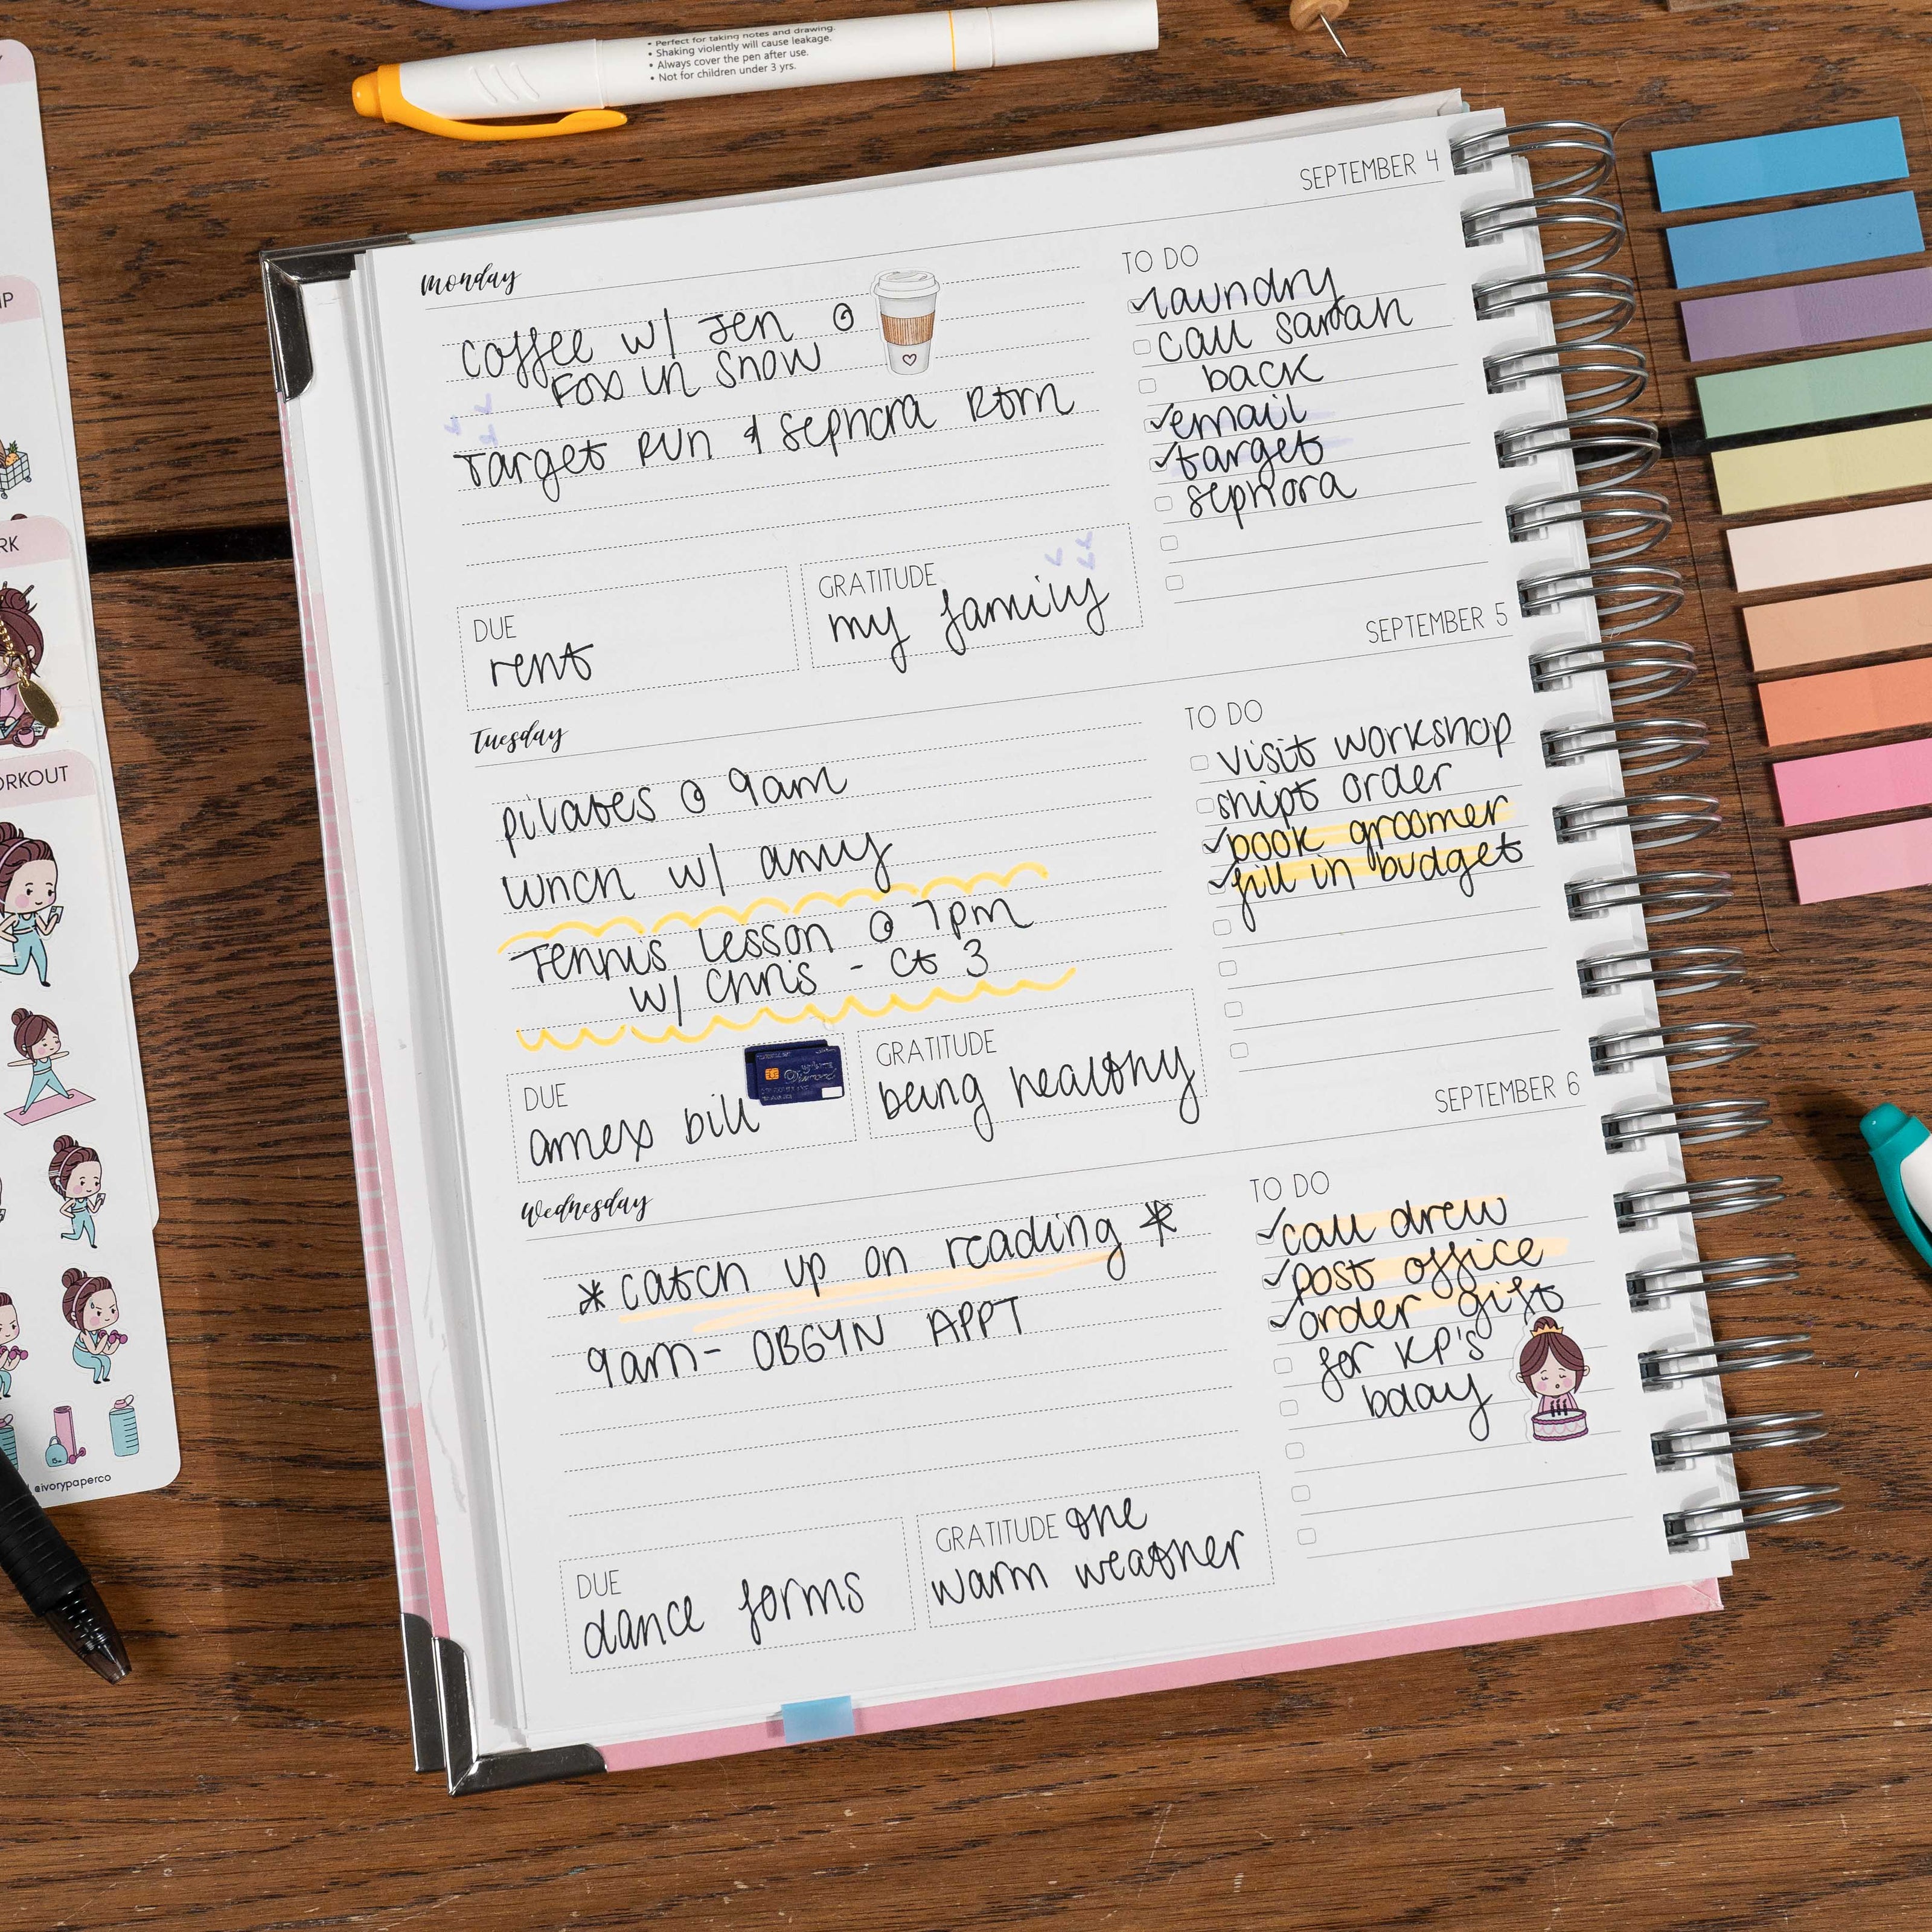 • Perfect for taking notes and drawing.
• Shaking violently will cause leakage.
• Always cover the pen after use.
• Not for children under 3 yrs.
SEPTEMBER 4
Monday
coffee w/ Jen @
Fox in Snow
Target Run & Sephora Rtrn
DUE
rent
GRATITUDE
my family
TO DO
laundry
call sarah
back
email
target
sephora
SEPTEMBER 5
Tuesday
pilates @ 9am
lunch w/ amy
Tennis Lesson @ 7pm
w/ Chris - Ct 3
DUE
amex bill
GRATITUDE
being healthy
TO DO
visit workshop
ship order
book groomer
fill in budget
SEPTEMBER 6
Wednesday
* catch up on reading *
9am - OBGYN APPT
DUE
dance forms
GRATITUDE the
warm weather
TO DO
call drew
post office
order gift
for KP's
bday
IP
RK
ORKOUT
@ivorypaperco